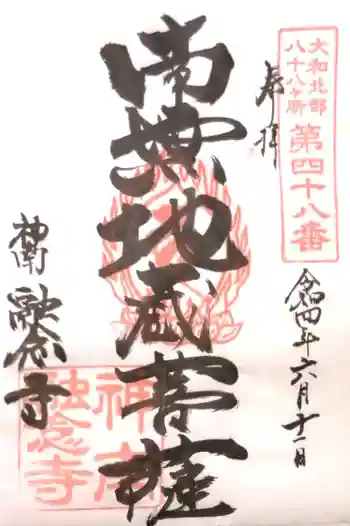 大和北部
八十八ヶ所
第四十八番
奉拝
令和四年六月十一日
南無地蔵菩薩
神南
融念寺
神南
融念寺